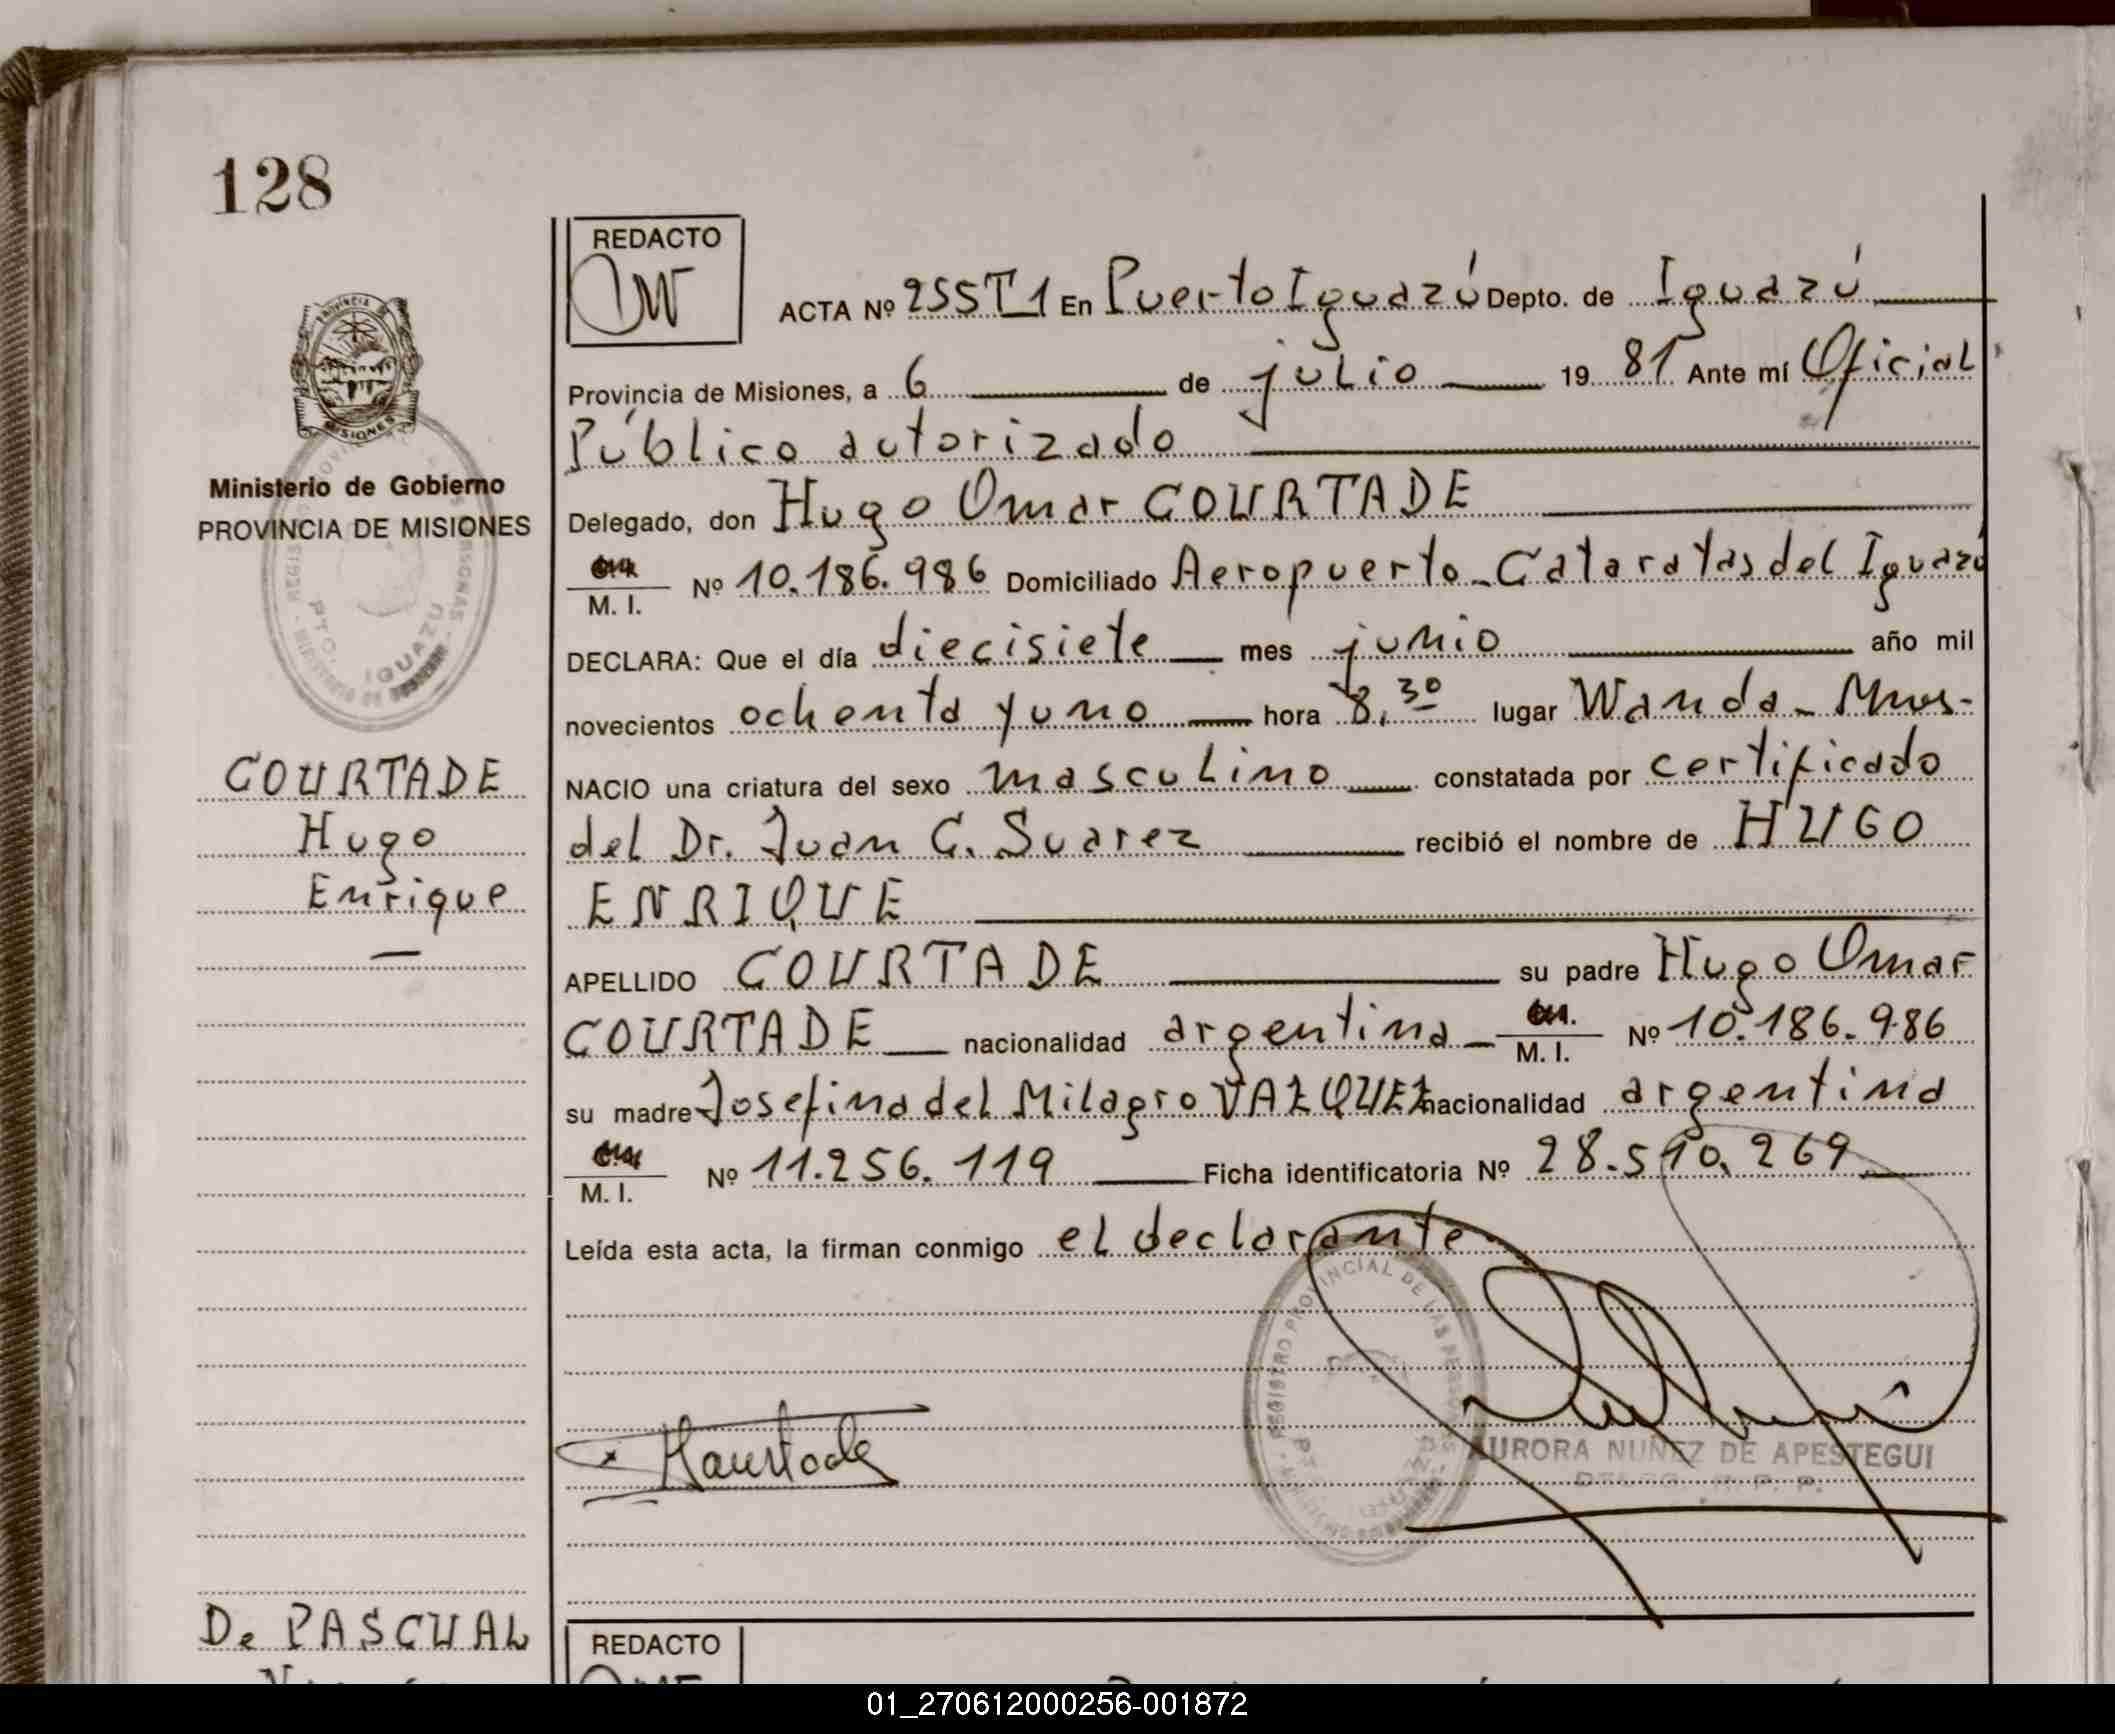 128
REDACTO
ACTA Nº 255T1 En Puerto Iguazú Depto. de Iguazú
PROVINCIA
MISIONES
Provincia de Misiones, a 6 de julio 19 81 Ante mí Oficial
Público autorizado
Ministerio de Gobierno
PROVINCIA DE MISIONES
Delegado, don Hugo Omar COURTADE
M. I. Nº 10.186.986 Domiciliado Aeropuerto - Cataratas del Iguazú
PTO. IGUAZU
DECLARA: Que el día diecisiete mes junio año mil
novecientos ochenta y uno hora 8,30 lugar Wanda - Mnes-
COURTADE
Hugo
Enrique
NACIO una criatura del sexo masculino constatada por certificado
del Dr. Juan C. Suarez recibió el nombre de HUGO
ENRIQUE
APELLIDO COURTADE su padre Hugo Omar
COURTADE nacionalidad argentina M. I. Nº 10.186.986
su madre Josefina del Milagro VAZQUEZ nacionalidad argentina
M. I. Nº 11.256.119 Ficha identificatoria Nº 28.510.269
Leída esta acta, la firman conmigo el declarante
REGISTRO PROVINCIAL DE LAS PERSONAS
AURORA NUÑEZ DE APESTEGUI
De PASCUAL
REDACTO
01_270612000256-001872